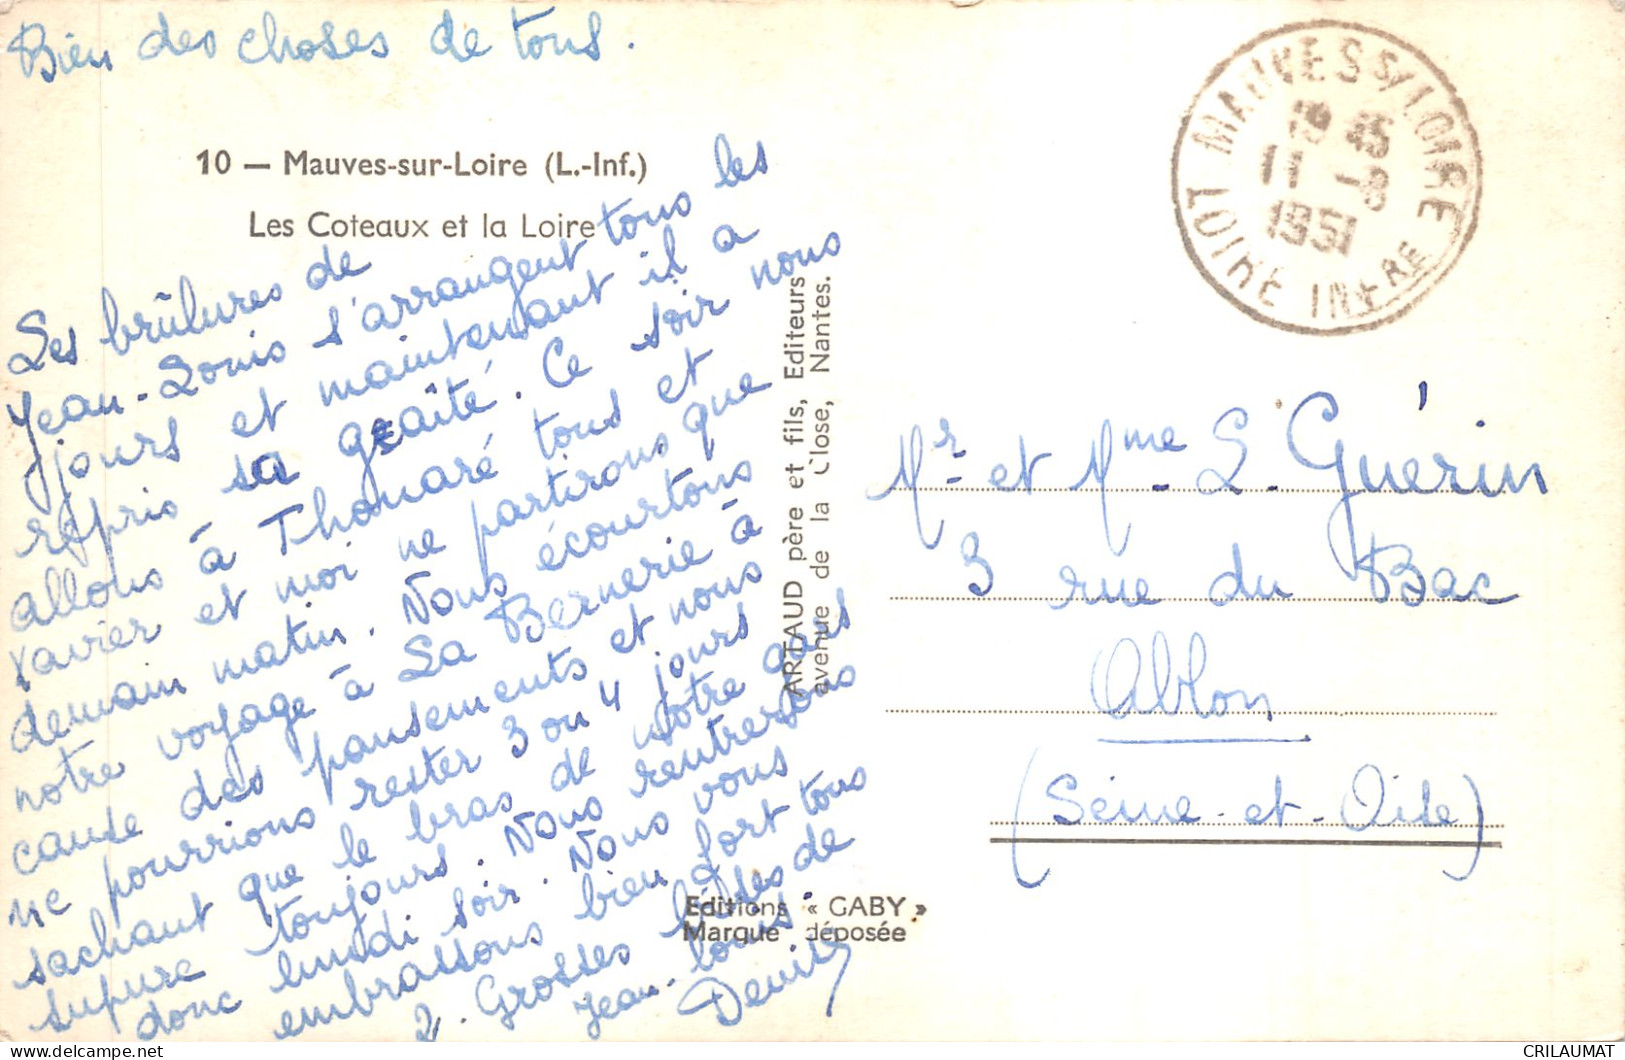 Bien des choses de tous.
10 — Mauves-sur-Loire (L.-Inf.)
Les Coteaux et la Loire
Les brûlures de
Jean-Louis s'arrangent tous les
jours et maintenant il a
repris sa gaaîté. Ce soir nous
allons à Thouaré tous et
Xavier et moi ne partirons que
demain matin. Nous écourtons
notre voyage à La Bernerie à
cause des pansements et nous
ne pourrions rester 3 ou 4 jours
sachant que le bras de notre gars
supure toujours. Nous rentrerons
donc lundi soir. Nous vous
embrassons bien fort tous
2. Grosses bises de
Jean-Louis
ARTAUD père et fils, Editeurs
avenue de la Close, Nantes.
Editions « GABY »
Marque déposée
MAUVES S/LOIRE
19 45
11 -8
1951
LOIRE INFRE
Mr. et Mme. L. Guérin
3 rue du Bac
Ablon
(Seine-et-Oise)
CRILAUMAT